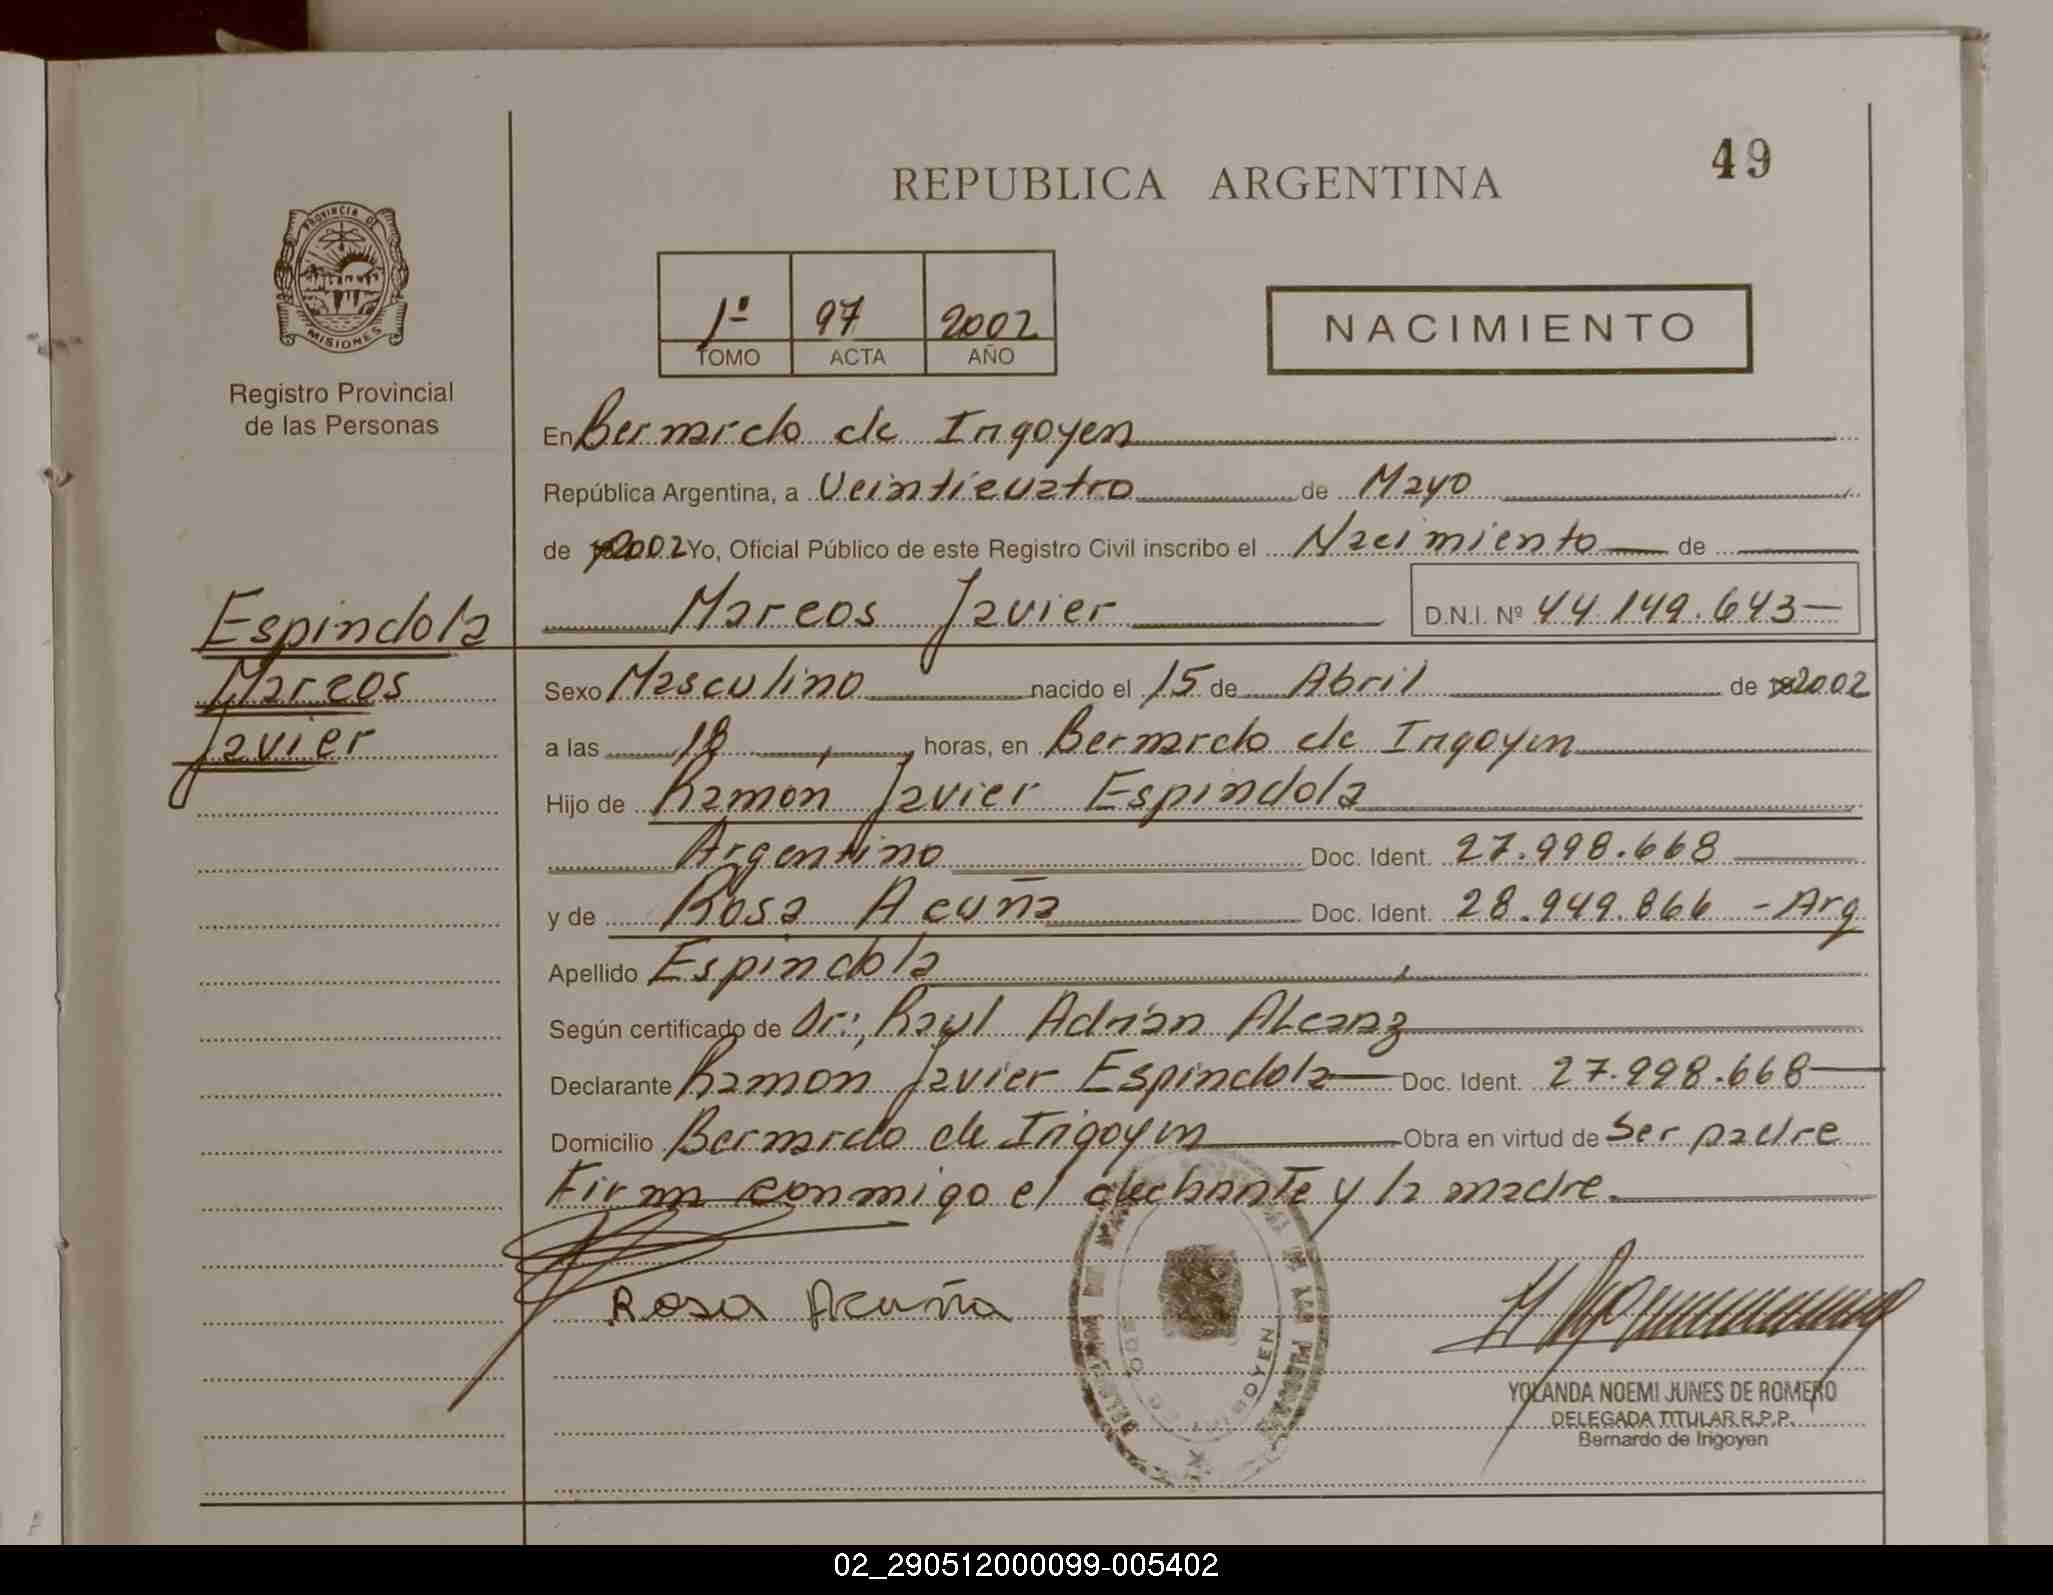 49
REPUBLICA ARGENTINA
PROVINCIA DE
MISIONES
Registro Provincial
de las Personas
1º 97 2002
TOMO ACTA AÑO
NACIMIENTO
En Bernardo de Irigoyen
República Argentina, a Veinticuatro de Mayo
de 2002 Yo, Oficial Público de este Registro Civil inscribo el Nacimiento de
Marcos Javier D.N.I. Nº 44.149.643
Espindola
Marcos
Javier
Sexo Masculino nacido el 15 de Abril de 2002
a las 18 horas, en Bernardo de Irigoyen
Hijo de Ramón Javier Espindola
Argentino Doc. Ident. 27.998.668
y de Rosa Acuña Doc. Ident. 28.949.866 - Arg
Apellido Espindola
Según certificado de Dr.; Raul Adrián Alcaraz
Declarante Ramón Javier Espindola Doc. Ident. 27.998.668
Domicilio Bernardo de Irigoyen Obra en virtud de Ser padre
Firman conmigo el declarante y la madre.
Rosa Acuña
YOLANDA NOEMI JUNES DE ROMERO
DELEGADA TITULAR R.P.P.
Bernardo de Irigoyen
02_290512000099-005402